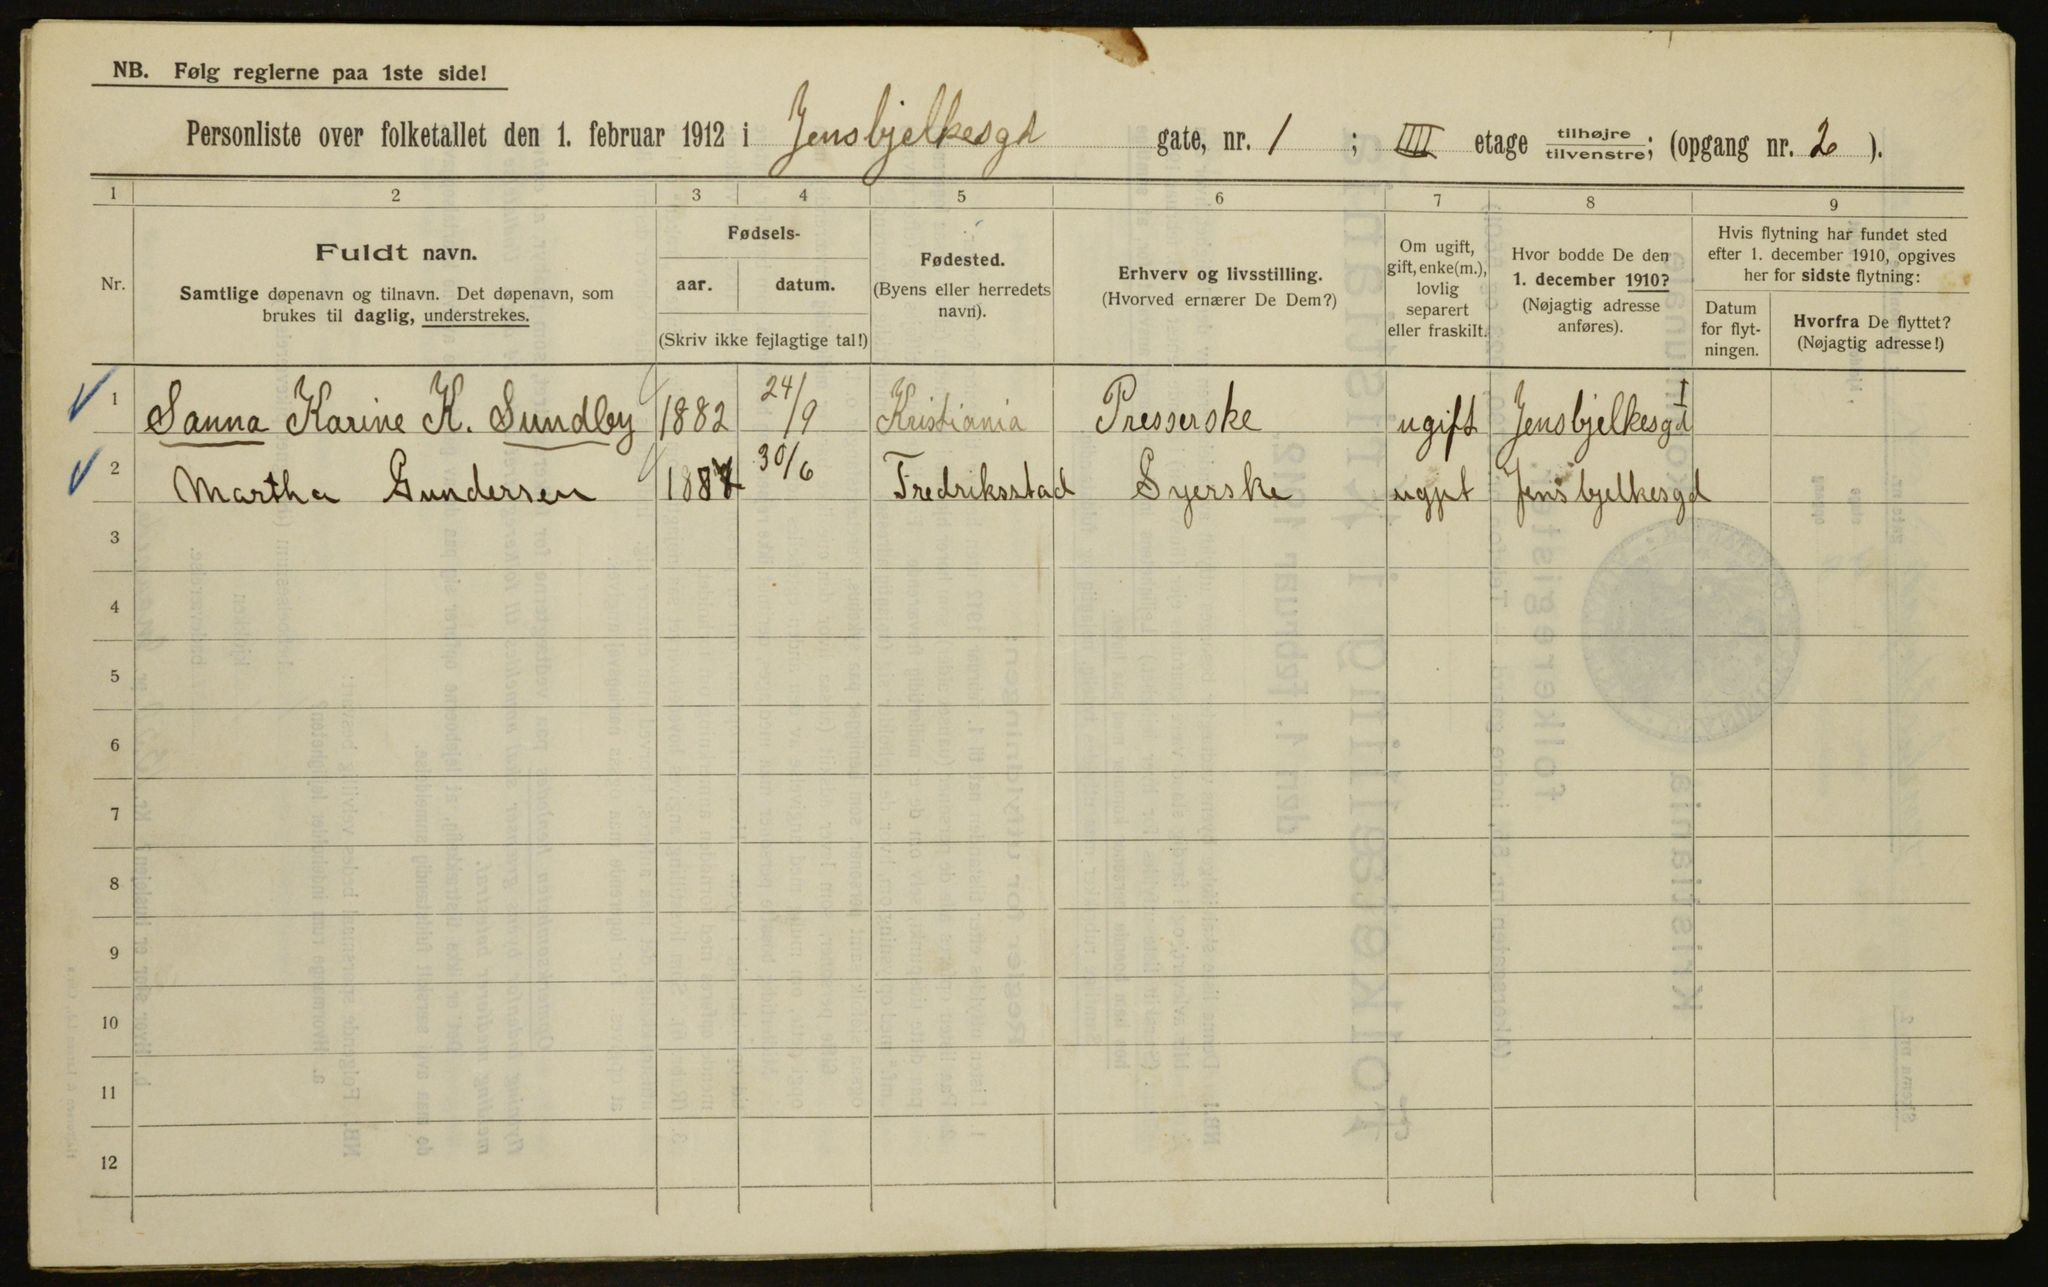 NB. Følg reglerne paa 1ste side!
Personliste over folketallet den 1. februar 1912 i Jensbjelkesgd gate, nr. 1 ; IIII etage tilhøjre/tilvenstre; (opgang nr. 2 ).
1 2 3 4 5 6 7 8 9
Nr.
Fuldt navn.
Samtlige døpenavn og tilnavn. Det døpenavn, som
brukes til daglig, understrekes.
Fødsels-
aar. datum.
(Skriv ikke fejlagtige tal!)
Fødested.
(Byens eller herredets
navn).
Erhverv og livsstilling.
(Hvorved ernærer De Dem?)
Om ugift,
gift, enke(m.),
lovlig
separert
eller fraskilt.
Hvor bodde De den
1. december 1910?
(Nøjagtig adresse
anføres).
Hvis flytning har fundet sted
efter 1. december 1910, opgives
her for sidste flytning:
Datum
for flyt-
ningen.
Hvorfra De flyttet?
(Nøjagtig adresse!)
1 Sanna Karine K. Sundby 1882 24/9 Kristiania Presserske ugift Jensbjelkesgd 1
2 Martha Gundersen 30/6 Fredriksstad Syerske ugift Jensbjelkesgd
3
4
5
6
7
8
9
10
11
12